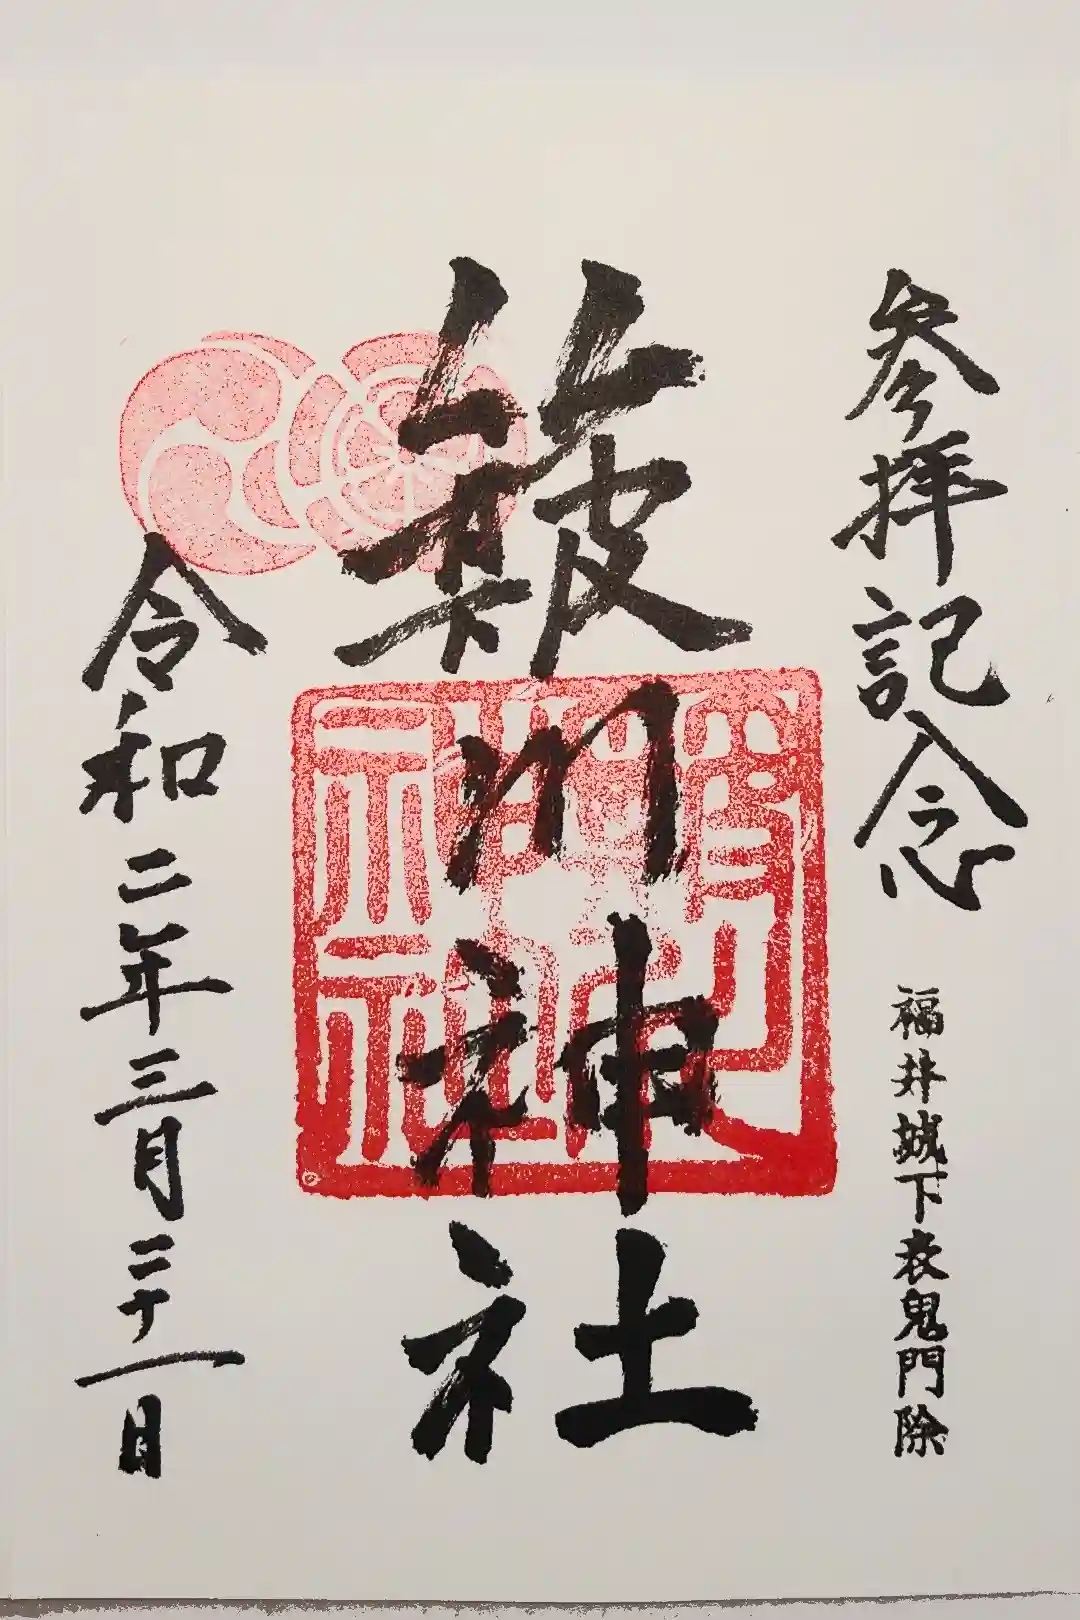 参拝記念
福井城下表鬼門除
簸川神社
令和二年三月二十一日